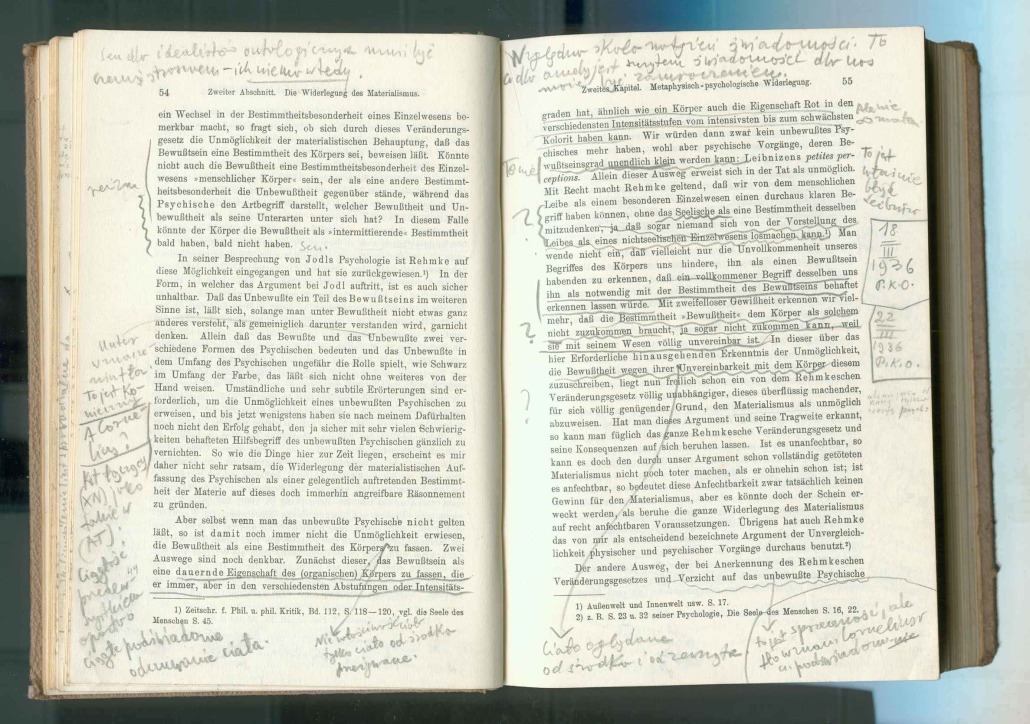 Sen dla idealistów ontologicznych musi być
ich nie ma wtedy.
54 Zweiter Abschnitt. Die Widerlegung des Materialismus.
ein Wechsel in der Bestimmtheitsbesonderheit eines Einzelwesens be-
merkbar macht, so fragt sich, ob sich durch dieses Veränderungs-
gesetz die Unmöglichkeit der materialistischen Behauptung, daß das
Bewußtsein eine Bestimmtheit des Körpers sei, beweisen läßt. Könnte
nicht auch die Bewußtheit eine Bestimmtheitsbesonderheit des Einzel-
wesens »menschlicher Körper« sein, der als eine andere Bestimmt-
heitsbesonderheit die Unbewußtheit gegenüber stände, während das
Psychische den Artbegriff darstellt, welcher Bewußtheit und Un-
bewußtheit als seine Unterarten unter sich hat? In diesem Falle
könnte der Körper die Bewußtheit als »intermittierende« Bestimmtheit
bald haben, bald nicht haben. Sen.
In seiner Besprechung von Jodls Psychologie ist Rehmke auf
diese Möglichkeit eingegangen und hat sie zurückgewiesen.¹) In der
Form, in welcher das Argument bei Jodl auftritt, ist es auch sicher
unhaltbar. Daß das Unbewußte ein Teil des Bewußtseins im weiteren
Sinne ist, läßt sich, solange man unter Bewußtheit nicht etwas ganz
anderes versteht, als gemeiniglich darunter verstanden wird, garnicht
denken. Allein daß das Bewußte und das Unbewußte zwei ver-
schiedene Formen des Psychischen bedeuten und das Unbewußte in
dem Umfang des Psychischen ungefähr die Rolle spielt, wie Schwarz
im Umfang der Farbe, das läßt sich nicht ohne weiteres von der
Hand weisen. Umständliche und sehr subtile Erörterungen sind er-
forderlich, um die Unmöglichkeit eines unbewußten Psychischen zu
erweisen, und bis jetzt wenigstens haben sie nach meinem Dafürhalten
noch nicht den Erfolg gehabt, den ja sicher mit sehr vielen Schwierig-
keiten behafteten Hilfsbegriff des unbewußten Psychischen gänzlich zu
vernichten. So wie die Dinge hier zur Zeit liegen, erscheint es mir
daher nicht sehr ratsam, die Widerlegung der materialistischen Auf-
fassung des Psychischen als einer gelegentlich auftretenden Bestimmt-
heit der Materie auf dieses doch immerhin angreifbare Räsonnement
zu gründen.
Aber selbst wenn man das unbewußte Psychische nicht gelten
läßt, so ist damit noch immer nicht die Unmöglichkeit erwiesen,
die Bewußtheit als eine Bestimmtheit des Körpers zu fassen. Zwei
Auswege sind noch denkbar. Zunächst dieser, das Bewußtsein als
eine dauernde Eigenschaft des (organischen) Körpers zu fassen, die
er immer, aber in den verschiedensten Abstufungen oder Intensitäts-
1) Zeitschr. f. Phil. u. phil. Kritik, Bd. 112, S. 118—120, vgl. die Seele des
Menschen S. 45.
To jest
A Corne
lius?
(XN)
(AT)!
czyste podświadome
odczuwanie ciała.
tylko ciało od środka
przeżywane.
świadomości. To
jest świadomości dla nas
być zamroczeniem.
Zweites Kapitel. Metaphysisch-psychologische Widerlegung. 55
graden hat, ähnlich wie ein Körper auch die Eigenschaft Rot in den
verschiedensten Intensitätsstufen vom intensivsten bis zum schwächsten
Kolorit haben kann. Wir würden dann zwar kein unbewußtes Psy-
chisches mehr haben, wohl aber psychische Vorgänge, deren Be-
wußtseinsgrad unendlich klein werden kann: Leibnizens petites per-
ceptions. Allein dieser Ausweg erweist sich in der Tat als unmöglich.
Mit Recht macht Rehmke geltend, daß wir von dem menschlichen
Leibe als einem besonderen Einzelwesen einen durchaus klaren Be-
griff haben können, ohne das Seelische als eine Bestimmtheit desselben
mitzudenken, ja daß sogar niemand sich von der Vorstellung des
Leibes als eines nichtseelischen Einzelwesens losmachen kann.¹) Man
wende nicht ein, daß vielleicht nur die Unvollkommenheit unseres
Begriffes des Körpers uns hindere, ihn als einen Bewußtsein
habenden zu erkennen, daß ein vollkommener Begriff desselben uns
ihn als notwendig mit der Bestimmtheit des Bewußtseins behaftet
erkennen lassen würde. Mit zweifelloser Gewißheit erkennen wir viel-
mehr, daß die Bestimmtheit »Bewußtheit« dem Körper als solchem
nicht zuzukommen braucht, ja sogar nicht zukommen kann, weil
sie mit seinem Wesen völlig unvereinbar ist. In dieser über das
hier Erforderliche hinausgehenden Erkenntnis der Unmöglichkeit,
die Bewußtheit wegen ihrer Unvereinbarkeit mit dem Körper diesem
zuzuschreiben, liegt nun freilich schon ein von dem Rehmkeschen
Veränderungsgesetz völlig unabhängiger, dieses überflüssig machender,
für sich völlig genügender Grund, den Materialismus als unmöglich
abzuweisen. Hat man dieses Argument und seine Tragweite erkannt,
so kann man füglich das ganze Rehmkesche Veränderungsgesetz und
seine Konsequenzen auf sich beruhen lassen. Ist es unanfechtbar, so
kann es doch den durch unser Argument schon vollständig getöteten
Materialismus nicht noch toter machen, als er ohnehin schon ist; ist
es anfechtbar, so bedeutet diese Anfechtbarkeit zwar tatsächlich keinen
Gewinn für den Materialismus, aber es könnte doch der Schein er-
weckt werden, als beruhe die ganze Widerlegung des Materialismus
auf recht anfechtbaren Voraussetzungen. Übrigens hat auch Rehmke
das von mir als entscheidend bezeichnete Argument der Unvergleich-
lichkeit physischer und psychischer Vorgänge durchaus benutzt.²)
Der andere Ausweg, der bei Anerkennung des Rehmkeschen
Veränderungsgesetzes und Verzicht auf das unbewußte Psychische
1) Außenwelt und Innenwelt usw. S. 17.
2) z. B. S. 23 u. 32 seiner Psychologie, Die Seele des Menschen S. 16, 22.
Ale nie
To jest
właśnie
błąd
Leibniza
18
III
1936
P.K.O.
22
III
1936
P.K.O.
?
?
?
Ciało oglądane
od środka i od zewnątrz.
to jest sprzeczność, ale
Cornelius